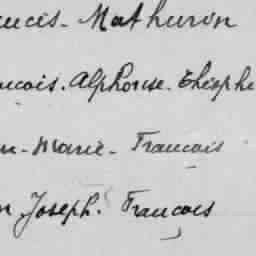 ancis. Mathurin
ncois. Alphonse. Théoph
n-Marie- Francois
n Joseph. Francois